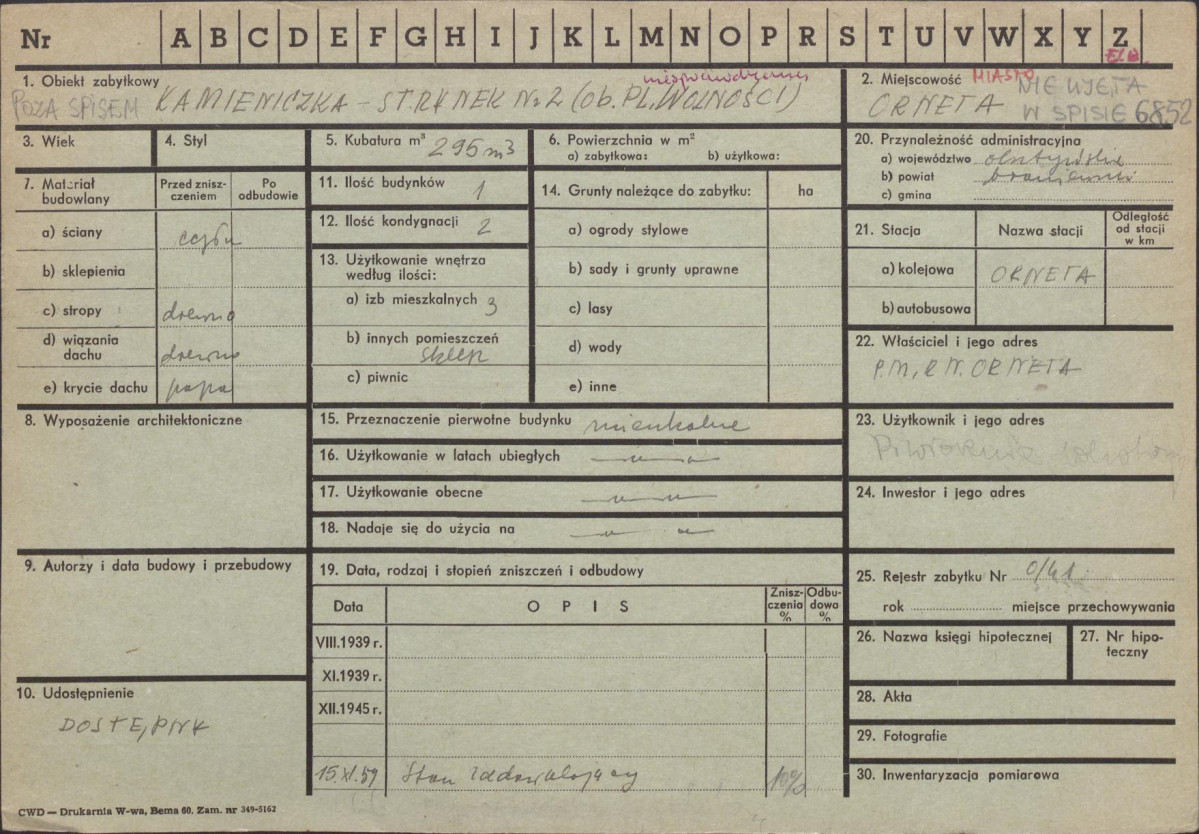 Nr A B C D E F G H I J K L M N O P R S T U V W X Y Z
ELB.
1. Obiekt zabytkowy
POZA SPISEM KAMIENICZKA – ST. RYNEK Nr 2 (ob. PL. WOLNOŚCI)
2. Miejscowość MIASTO NIE UJĘTA
ORNETA W SPISIE 6852
3. Wiek
4. Styl
5. Kubatura m³ 295 m3
6. Powierzchnia w m²
a) zabytkowa: b) użytkowa:
20. Przynależność administracyjna
a) województwo olsztyńskie
b) powiat braniewski
c) gmina
7. Materiał budowlany
Przed zniszczeniem
Po odbudowie
a) ściany cegła
b) sklepienia
c) stropy drewno
d) wiązania dachu drewno
e) krycie dachu papa
11. Ilość budynków 1
12. Ilość kondygnacji 2
13. Użytkowanie wnętrza
według ilości:
a) izb mieszkalnych 3
b) innych pomieszczeń
sklep
c) piwnic
14. Grunty należące do zabytku: ha
a) ogrody stylowe
b) sady i grunty uprawne
c) lasy
d) wody
e) inne
21. Stacja Nazwa stacji Odległość od stacji w km
a) kolejowa ORNETA
b) autobusowa
22. Właściciel i jego adres
P.M.RN. ORNETA
8. Wyposażenie architektoniczne
15. Przeznaczenie pierwotne budynku mieszkalne
16. Użytkowanie w latach ubiegłych —„—„—
17. Użytkowanie obecne —„—„—
18. Nadaje się do użycia na —„—„—
23. Użytkownik i jego adres
24. Inwestor i jego adres
9. Autorzy i data budowy i przebudowy
19. Data, rodzaj i stopień zniszczeń i odbudowy
Data OPIS Zniszczenia % Odbudowa %
VIII.1939 r.
XI.1939 r.
XII.1945 r.
15.XI.59 Stan zadowalający 10%
25. Rejestr zabytku Nr 0/41
rok miejsce przechowywania
26. Nazwa księgi hipotecznej
27. Nr hipoteczny
10. Udostępnienie
DOSTĘPNY
28. Akta
29. Fotografie
30. Inwentaryzacja pomiarowa
CWD — Drukarnia W-wa, Bema 60. Zam. nr 349-5162